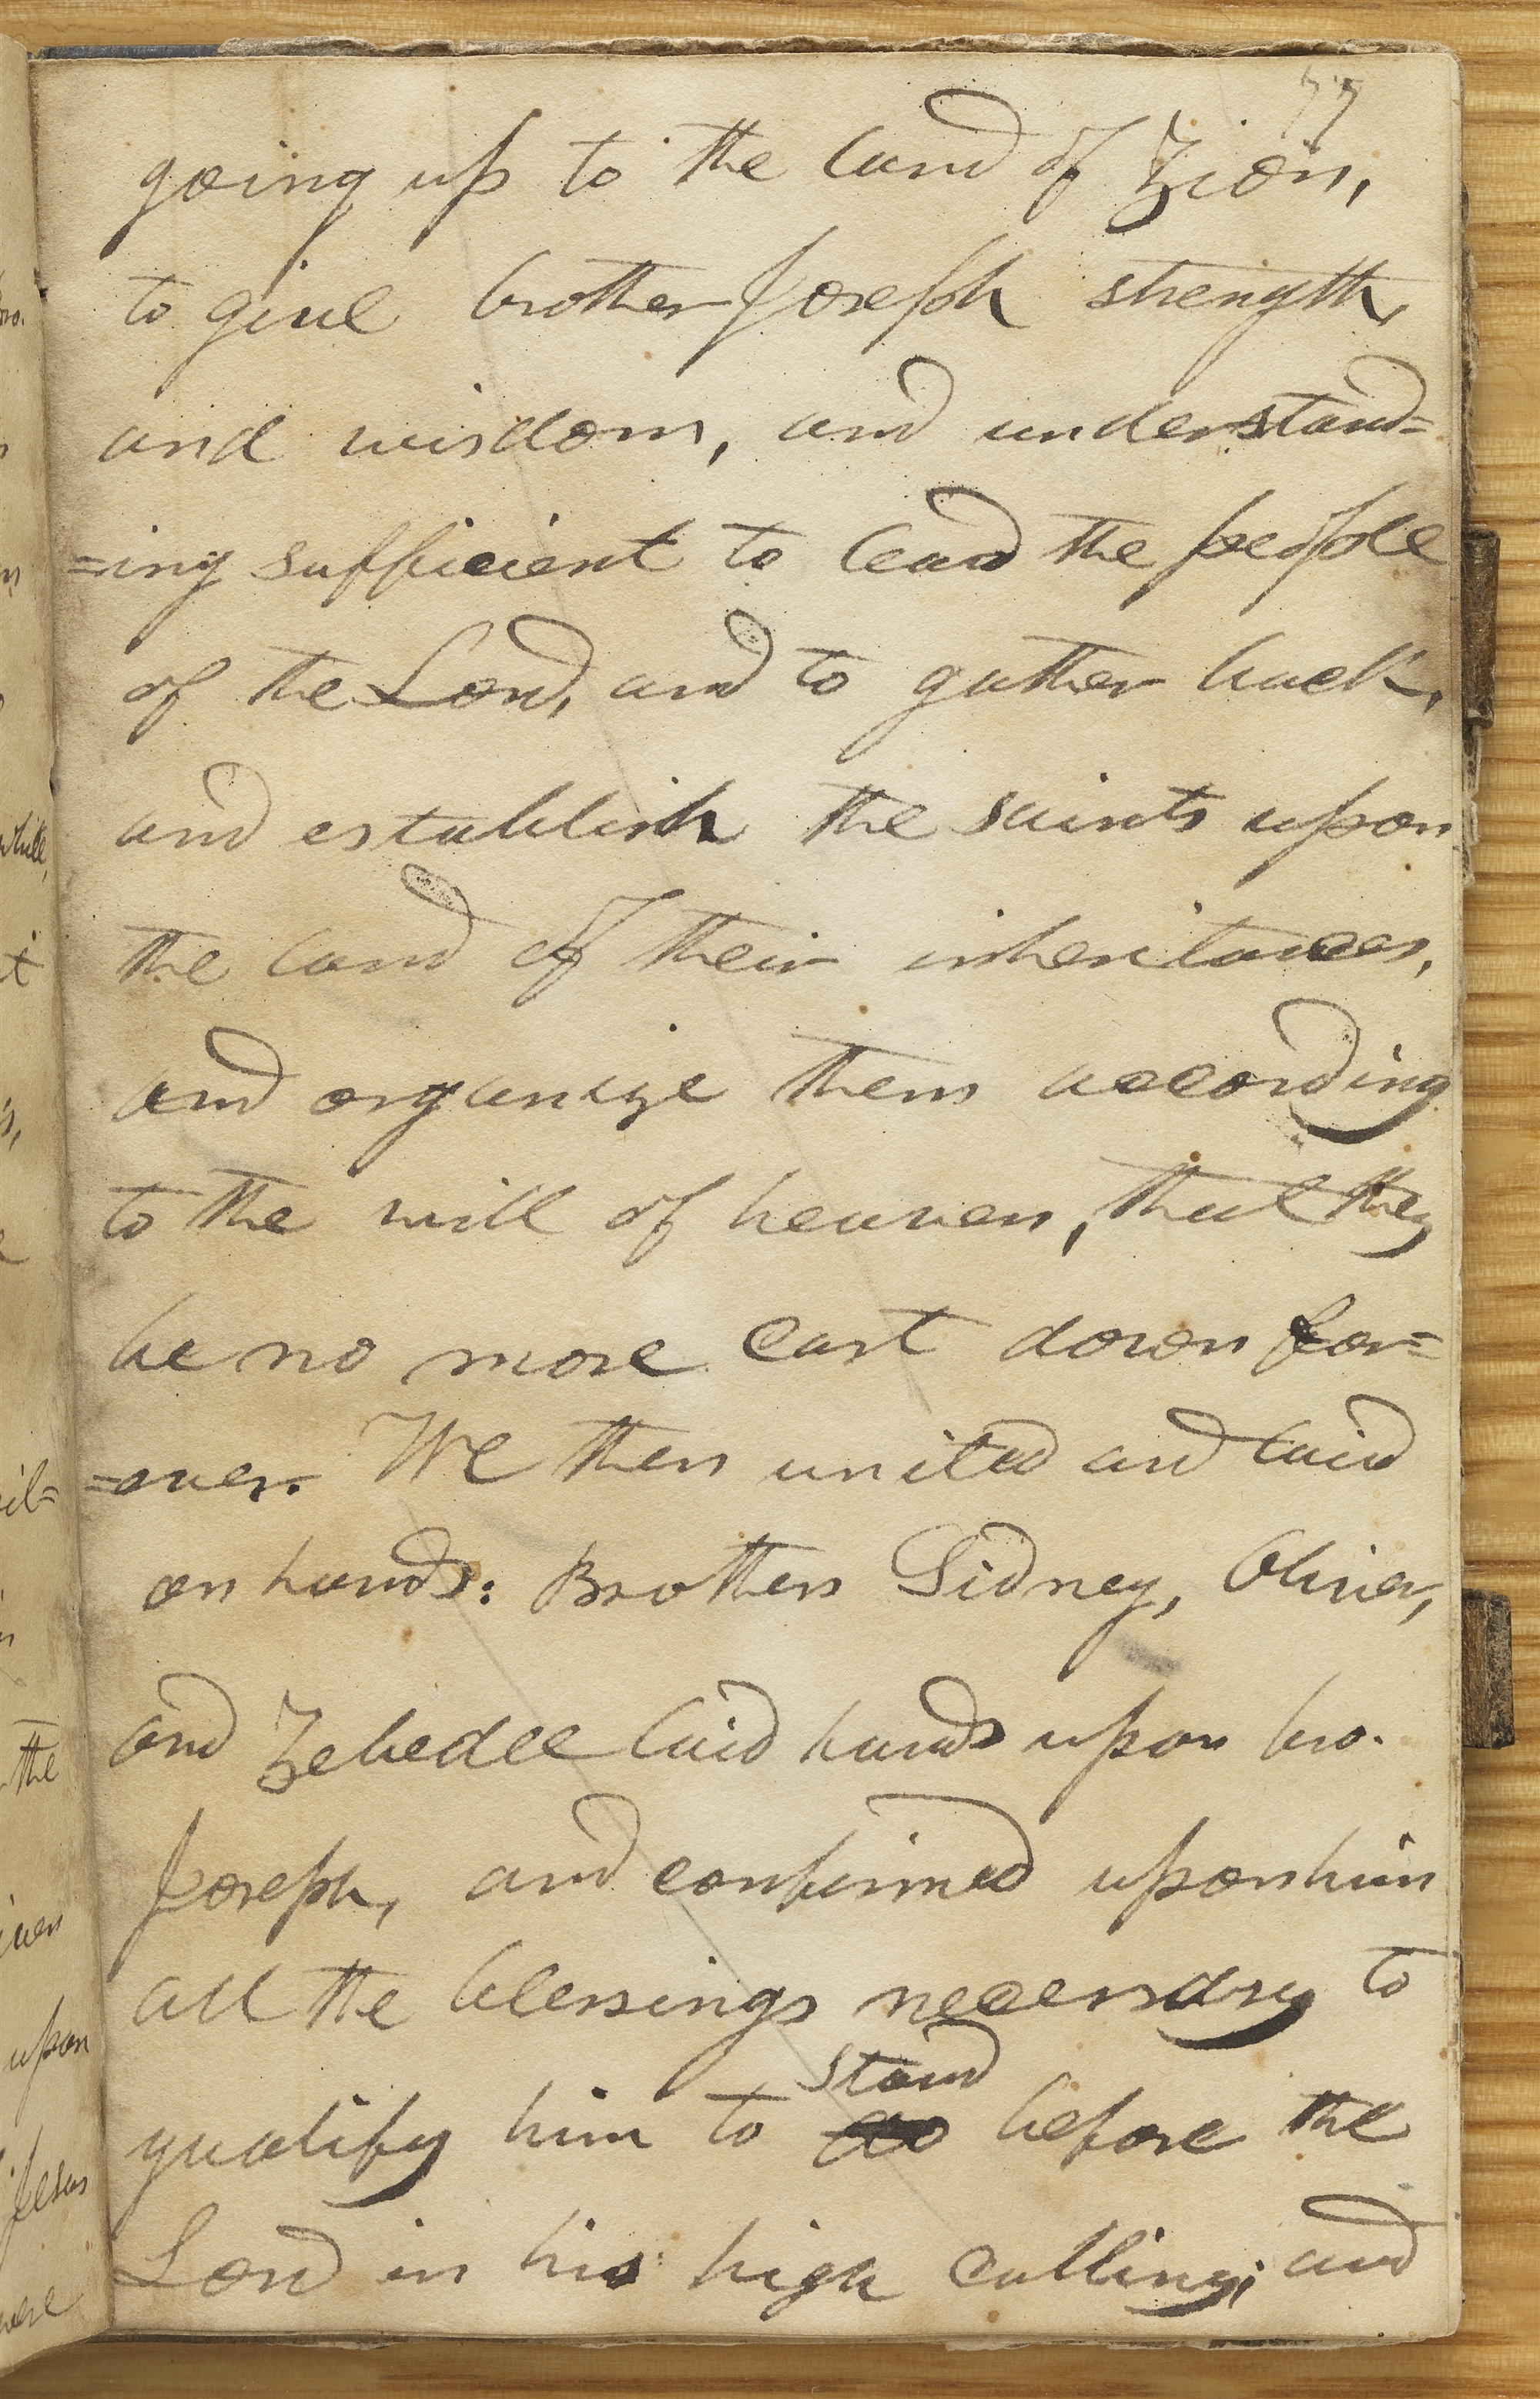 77
going up to the land of Zion,
to give brother Joseph strength,
and wisdom, and understand=
=ing sufficient to lead the people
of the Lord, and to gather back,
and establish the saints upon
the land of their inheritances,
and organize them according
to the will of heaven, that they
be no more cast down for=
=ever. We then united and laid
on hands: Brothers Sidney, Oliver,
and Zebedee laid hands upon bro.
Joseph, and confirmed upon him
all the blessings necessary to
stand
qualify him to do before the
Lord in his high calling; and